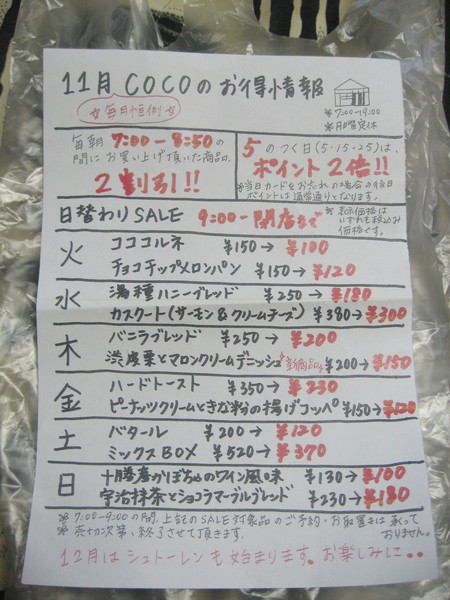 11月 COCOの お得情報
☆毎月恒例☆
※7:00-19:00
※月曜定休
毎朝 7:00-8:50の
間にお買い上げ頂いた商品、
2割引!!
5のつく日(5・15・25)は、
ポイント2倍!!
※当日カードをお忘れの場合の後日
ポイントは通常通りとなります。
日替わりSALE 9:00-閉店まで
※表示価格は
いずれも税込み
価格です。
火 コココルネ ¥150→¥100
チョコチップメロンパン ¥150→¥120
水 湯種ハニーブレッド ¥250→¥180
カスクート(サーモン&クリームチーズ) ¥380→¥300
木 バニラブレッド ¥250→¥200
渋皮栗とマロンクリームデニッシュ 新商品 ¥200→¥150
金 ハードトースト ¥350→¥230
ピーナッツクリームときな粉の揚げコッペ ¥150→¥120
土 バタール ¥200→¥120
ミックスBOX ¥520→¥370
日 十勝産かぼちゃのワイン風味 ¥130→¥100
宇治抹茶とショコラマーブルブレッド ¥230→¥180
※7:00-9:00の間、上記のSALE対象品のご予約・お取置きは承って
おりません。
※売切次第、終了させて頂きます。
12月はシュトーレンも始まります。お楽しみに..